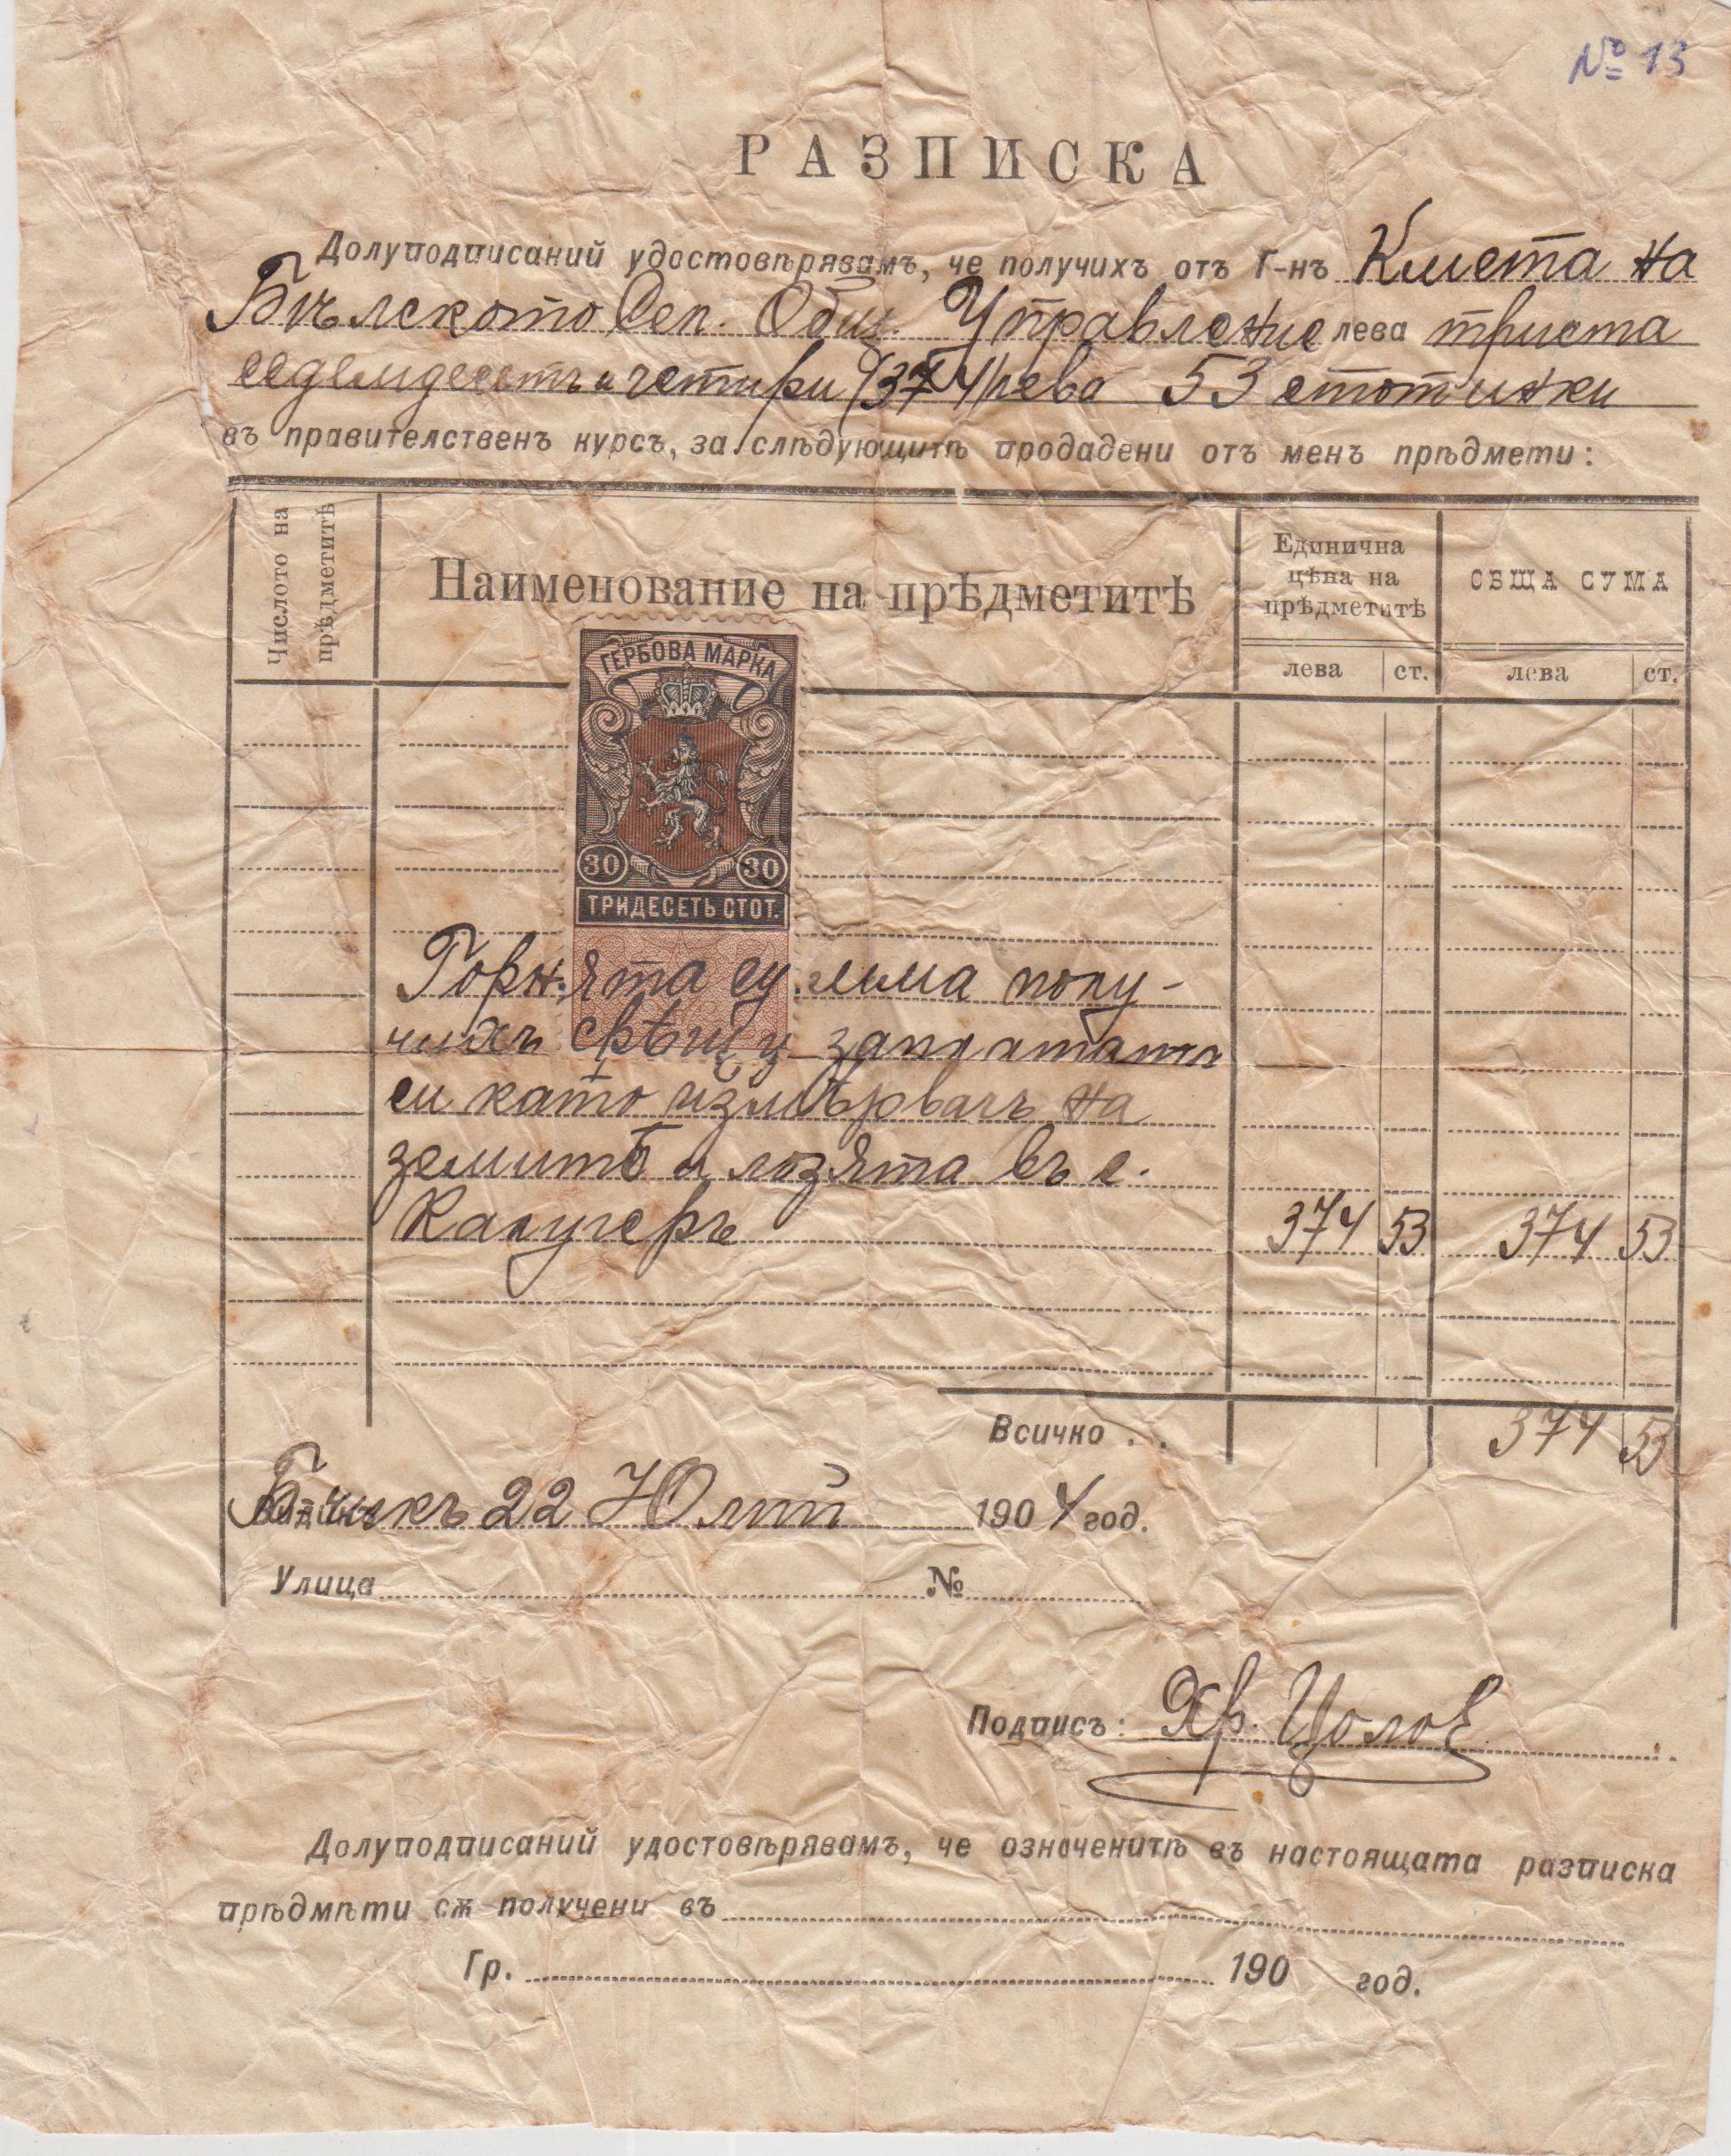 № 13
РАЗПИСКА
Долуподписаний удостовѣрявамъ, че получихъ отъ Г-нъ Кмета на
Бѣлското Сел. Общ. Управление лева триста
седемдесетъ и четири (374) лева 53 стотинки
въ правителственъ курсъ, за слѣдующитѣ продадени отъ менъ прѣдмети:
Числото на прѣдметитѣ
Наименование на прѣдметитѣ
Единична цѣна на прѣдметитѣ
ОБЩА СУМА
лева ст. лева ст.
ГЕРБОВА МАРКА
30 30
ТРИДЕСЕТЬ СТОТ.
Горнята сумма полу-
чихъ срѣщу заплатата
си като измѣрвачъ на
земитѣ и лозята въ с.
Калугеръ 374 53 374 53
Всичко . . 374 53
22 Юлий 1904 год.
Улица №
Подписъ: Хр. Цолов
Долуподписаний удостовѣрявамъ, че означенитѣ въ настоящата разписка
прѣдмѣти сѫ получени въ
Гр. 190 год.